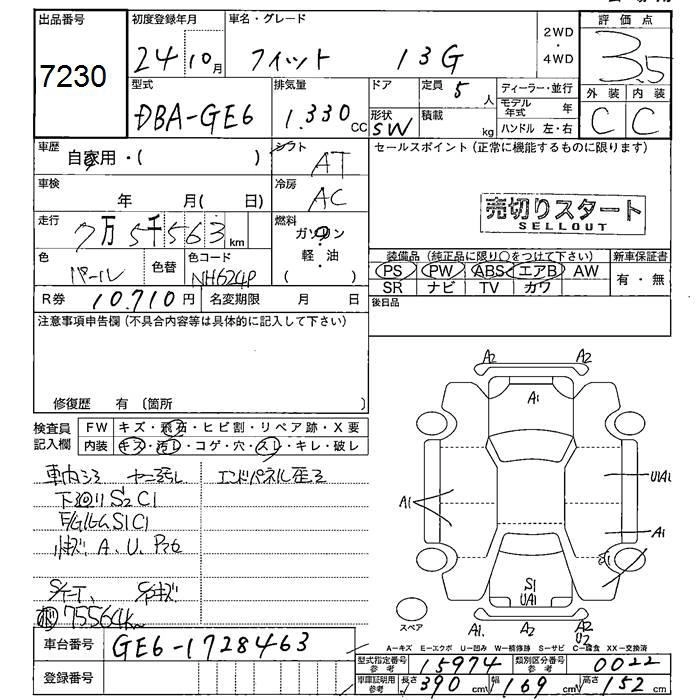 出品番号
7230
初度登録年月
24年10月
車名・グレード
フィット 13G
2WD
・
4WD
評価点
3.5
外装 内装
C C
型式
DBA-GE6
排気量
1.330 CC
ドア
形状
SW
定員 5人
積載 kg
ディーラー・並行
モデル年式 年
ハンドル 左・右
車歴
自家用・( )
シフト
AT
セールスポイント(正常に機能するものに限ります)
売切りスタート
SELLOUT
車検
年 月( 日)
冷房
AC
走行
7万5千563km
燃料
ガソリン
・
軽・油
( )
色
パール
色替
色コード
NH624P
装備品(純正品に限り○をつけて下さい)
PS PW ABS エアB AW
SR ナビ TV カワ
新車保証書
有・無
R券 10,710円
名変期限 月 日
後日品
注意事項申告欄(不具合内容等は具体的に記入して下さい)
修復歴 有 〔箇所 〕
検査員
記入欄
FW キズ・飛石・ヒビ割・リペア跡・X要
内装 キズ・汚し・コゲ・穴・スレ・キレ・破レ
車内シミ ヤニ汚し
エンドパネル歪ミ
下廻りS2C1
F/GLG S1C1
小キズ A、U、P多
75564km
車台番号
GE6-1728463
登録番号
A2 A2
A1
A1
U1A1
A1
S1
S1
U1A1
A1. A2 A2
U2
スペア
A-キズ E-エクボ U-凹み W-補修跡 S-サビ C-腐食 XX-交換済
型式指定番号
参考
15974
類別区分番号
参考
0022
車庫証明用
参考
長さ 390cm
幅 169cm
高さ 152cm